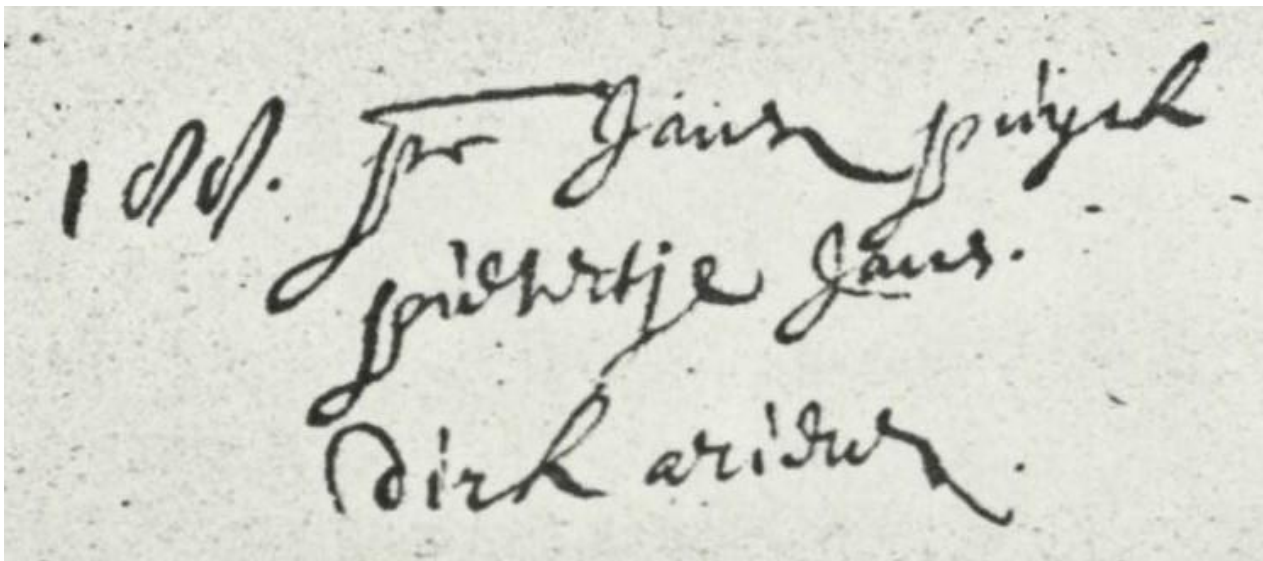 188. pr Jansz puyck
pietertje Jans.
Dirk ariensz.